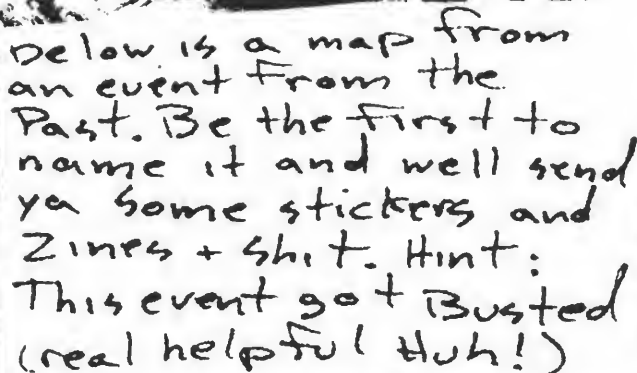 Below is a map from
an event from the
Past. Be the first to
name it and well send
ya some stickers and
Zines + shit. Hint:
This event got Busted
(real helpful Huh!)